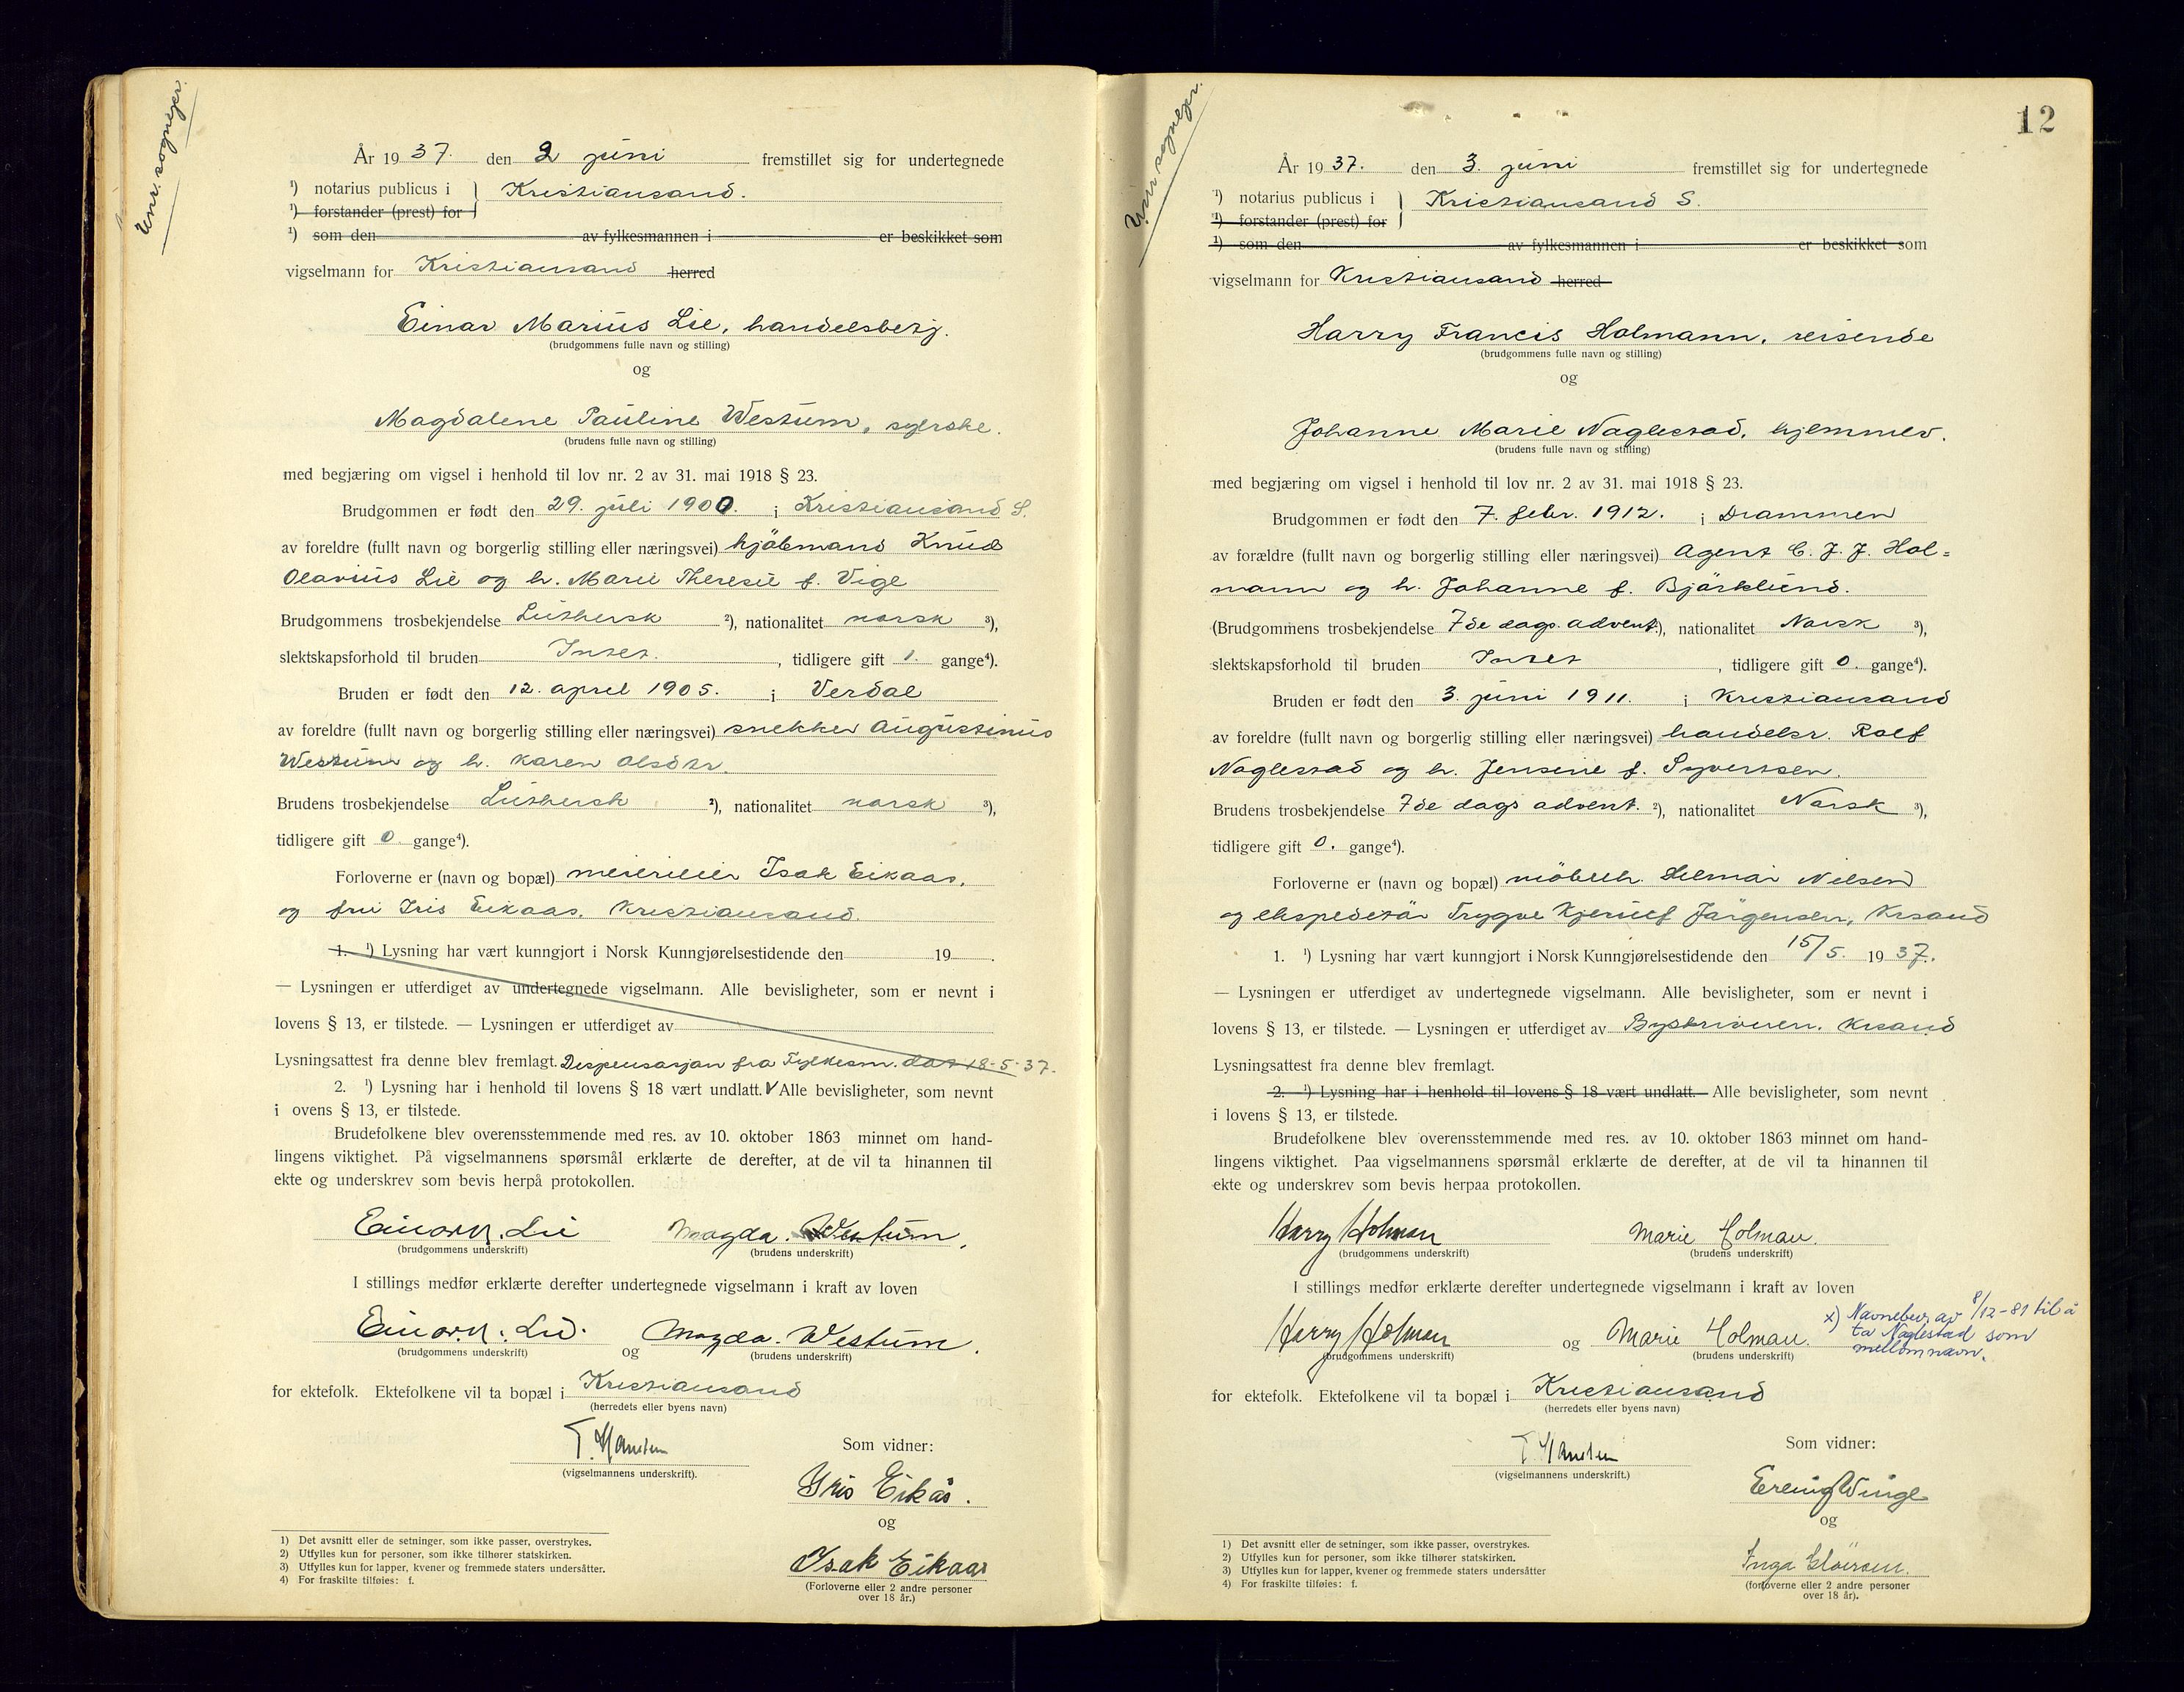 Enr. sogneprr.
År 1937. den 2 juni fremstillet sig for undertegnede
¹) notarius publicus i } Kristiansand.
¹) forstander (prest) for
¹) som den av fylkesmannen i er beskikket som
vigselmann for Kristiansand herred
Einar Marius Lie, handelsbetj.
(brudgommens fulle navn og stilling)
og
Magdalene Pauline Westum, syerske.
(brudens fulle navn og stilling)
med begjæring om vigsel i henhold til lov nr. 2 av 31. mai 1918 § 23.
Brudgommen er født den 29. juli 1900. i Kristiansand S.
av foreldre (fullt navn og borgerlig stilling eller næringsvei) kjöbmand Knud
Olavius Lie og h. Marie Theresie f. Vige
Brudgommens trosbekjendelse Luthersk ²), nationalitet norsk ³),
slektskapsforhold til bruden Intet. , tidligere gift 1. gange⁴).
Bruden er født den 12. april 1905. i Verdal
av foreldre (fullt navn og borgerlig stilling eller næringsvei) snekker Augustinus
Westum og h. Karen Olsdtr.
Brudens trosbekjendelse Luthersk ²), nationalitet norsk ³),
tidligere gift 0. gange⁴).
Forloverne er (navn og bopæl) meierieier Isak Eikaas,
og fru Iris Eikaas, Kristiansand.
1. ¹) Lysning har vært kunngjort i Norsk Kunngjørelsestidende den 19 .
— Lysningen er utferdiget av undertegnede vigselmann. Alle bevisligheter, som er nevnt i
lovens § 13, er tilstede. — Lysningen er utferdiget av
Lysningsattest fra denne blev fremlagt. Dispensasjon fra Fylkesm. dat 18-5-37.
2. ¹) Lysning har i henhold til lovens § 18 vært undlatt. Alle bevisligheter, som nevnt
i ovens § 13, er tilstede.
Brudefolkene blev overensstemmende med res. av 10. oktober 1863 minnet om hand-
lingens viktighet. På vigselmannens spørsmål erklærte de derefter, at de vil ta hinannen til
ekte og underskrev som bevis herpå protokollen.
Einar M. Lie Magda. Westum,
(brudgommens underskrift) (brudens underskrift)
I stillings medfør erklærte derefter undertegnede vigselmann i kraft av loven
Einar M. Lie. og Magda. Westum.
(brudgommens underskrift) (brudens underskrift)
for ektefolk. Ektefolkene vil ta bopæl i Kristiansand
(herredets eller byens navn)
T. Hansten
(vigselmannens underskrift).
Som vidner:
Iris Eikås.
og
Isak Eikaas
(Forloverne eller 2 andre personer
over 18 år.)
1) Det avsnitt eller de setninger, som ikke passer, overstrykes.
2) Utfylles kun for personer, som ikke tilhører statskirken.
3) Utfylles kun for lapper, kvener og fremmede staters undersåtter.
4) For fraskilte tilføies: f.
12
År 1937. den 3. juni fremstillet sig for undertegnede
¹) notarius publicus i } Kristiansand S.
¹) forstander (prest) for
¹) som den av fylkesmannen i er beskikket som
vigselmann for Kristiansand herred
Harry Francis Holmann, reisende
(brudgommens fulle navn og stilling)
og
Johanne Marie Naglestad, hjemmev.
(brudens fulle navn og stilling)
med begjæring om vigsel i henhold til lov nr. 2 av 31. mai 1918 § 23.
Brudgommen er født den 7. febr. 1912. i Drammen
av forældre (fullt navn og borgerlig stilling eller næringsvei) Agent C. J. J. Hol=
mann og h. Johanne f. Bjørklund.
(Brudgommens trosbekjendelse 7de dags advent. ), nationalitet Norsk ³),
slektskapsforhold til bruden Intet , tidligere gift 0. gange⁴).
Bruden er født den 3. juni 1911. i Kristiansand
av foreldre (fullt navn og borgerlig stilling eller næringsvei) handelsr. Rolf
Naglestad og h. Jensine f. Syvertsen.
Brudens trosbekjendelse 7de dags advent. ²), nationalitet Norsk ³),
tidligere gift 0. gange⁴).
Forloverne er (navn og bopæl) möbelh. Hilmar Nilsen
og ekspeditör Trygve Kjerulf Jörgensen, Krsand
1. ¹) Lysning har vært kunngjort i Norsk Kunngjørelsestidende den 15/5. 1937.
— Lysningen er utferdiget av undertegnede vigselmann. Alle bevisligheter, som er nevnt i
lovens § 13, er tilstede. — Lysningen er utferdiget av Byskriveren. Krsand
Lysningsattest fra denne blev fremlagt.
2. ¹) Lysning har i henhold til lovens § 18 vært undlatt. Alle bevisligheter, som nevnt
i lovens § 13, er tilstede.
Brudefolkene blev overensstemmende med res. av 10. oktober 1863 minnet om hand-
lingens viktighet. Paa vigselmannens spørsmål erklærte de derefter, at de vil ta hinannen til
ekte og underskrev som bevis herpaa protokollen.
Harry Holman Marie Holman.
(brudgommens underskrift) (brudens underskrift)
I stillings medfør erklærte derefter undertegnede vigselmann i kraft av loven
Harry Holman og Marie Holman.
(brudgommens underskrift) (brudens underskrift)
x) Navnebev. av 8/12-81 til å
ta Naglestad som
mellomnavn.
for ektefolk. Ektefolkene vil ta bopæl i Kristiansand
(herredets eller byens navn)
T. Hansten
(vigselmannens underskrift.)
Som vidner:
Erling Winge
og
Inga
(forloverne eller 2 andre personer
over 18 år).
1) Det avsnitt eller de setninger, som ikke passer, overstrykes.
2) Utfylles kun for personer, som ikke tilhører statskirken.
3) Utfylles kun for lapper, kvener og fremmede staters undersåtter
4) For fraskilte tilføies: f.